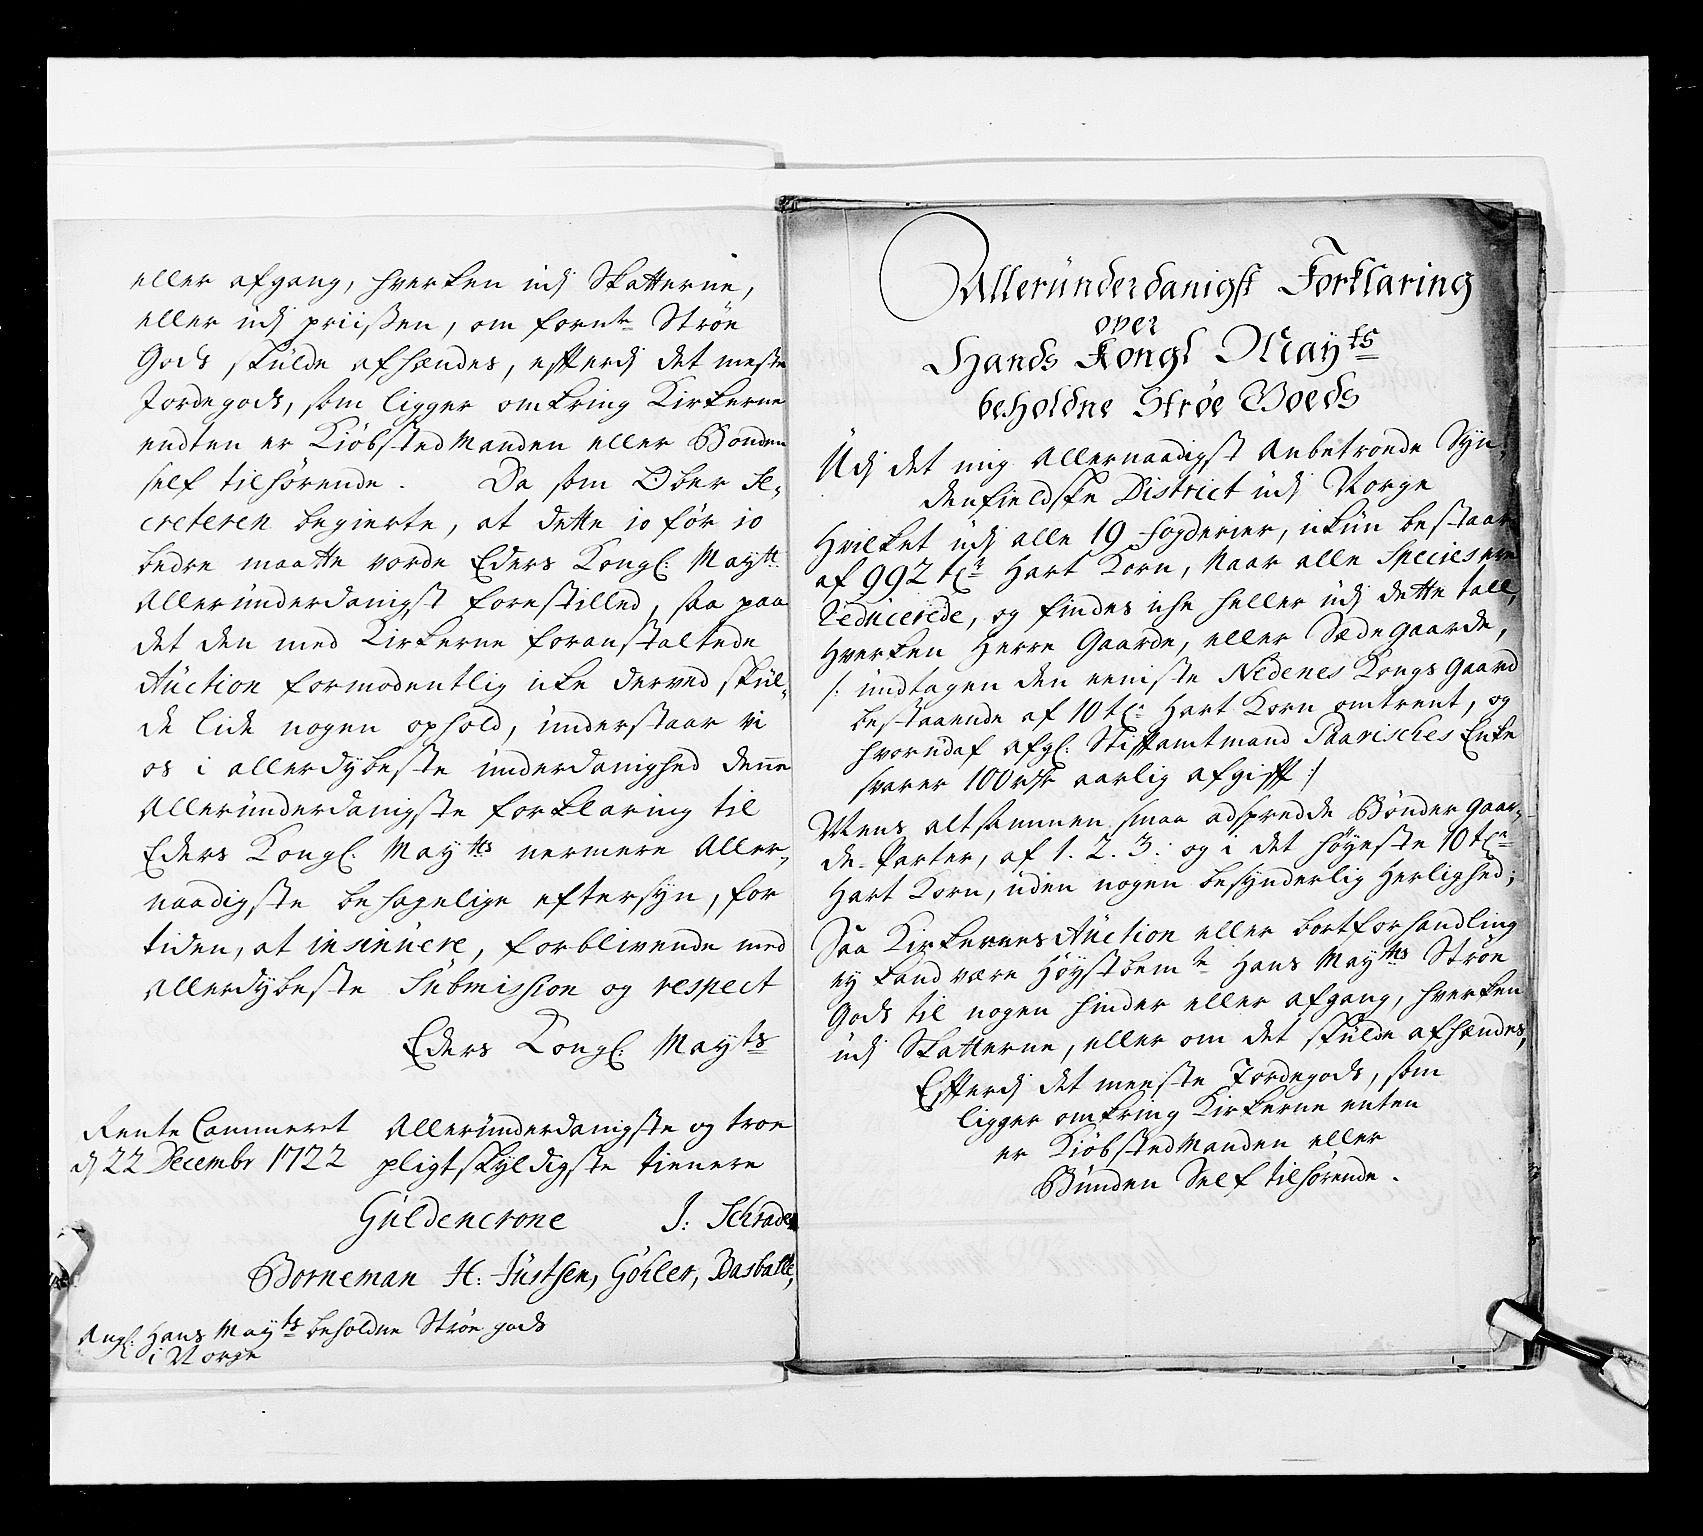 eller afgang, hverken udj Skatterne,
eller udj priisen, om fornte Strøe
Gods skulde afhændes, efterdj det meste
Jordegods, som ligger omkring Kirkerne
endten er Kiøbstedmanden eller Bonden
self tilhørende. Da som Ober Se,
creteren begierte, at dette jo før jo
bedre maatte vorde Eders Kongl: Maytt.
Allerunderdanigst forestilled, saa paa
det den med Kirkerne foranstaltede
Auction formodentlig icke derved skul,
de lide nogen ophold, understaar vi
os i allerdybeste underdanighed denne
Allerunderdanigste forklaring til
Eders Kongl: Maytts nermere Aller,
naadigste behagelige eftersyn, for
tiden, at insinuere, forblivende med
allerdybeste Submission og respect
Eders Kongl: Mayts
Rente Cammeret Allerunderdanigste og troe
dj 22 Decembr 1722 pligtskyldigste tienere
Güldencrone J: Schrader
Borneman H: Justsen, Göhler, Basballe,
Angl: Hans Mayts beholdne Strøe gods
i Norge
Alleründerdanigst Forklaring
over
Hands Kongl Mayts
beholdne Strøe Goeds
Udj det mig Allernaadigst Anbetroede Syn,
denfieldske District udj Norge
Hvilket udj alle 19 fogderier, ickun bestaar
af 992 tr Hart Korn, Naar alle Species ere
reducerede, og findes iche heller udj dette tall,
Hverken Herre Gaarde, eller Sædegaarde,
/: undtagen den eeniste Nedenes Kongs Gaard
bestaaende af 10 tr Hart Korn omtrent, og
hvorudaf afgl: Stiftamtmand Paarisches Enke
svarer 100 rdr aarlig afgifft :/
Mens altsammen smaa adspredde Bønder gaar,
de-Parter, af 1. 2. 3: og i det høyeste 10 tr
Hart Korn, uden nogen besynderlig Herlighed;
Saa Kirkernes Auction eller bortforhandling
ey kand være Høystbemte Hans Maytts Strøe
Gods til nogen hinder eller afgang, hverken
udj Skatterne, eller om det skulde afhændes,
Efterdj det meeste Jordegods, som
ligger omkring Kirkerne enten
er Kiøbstedmanden eller
Bunden Self tilhørende.